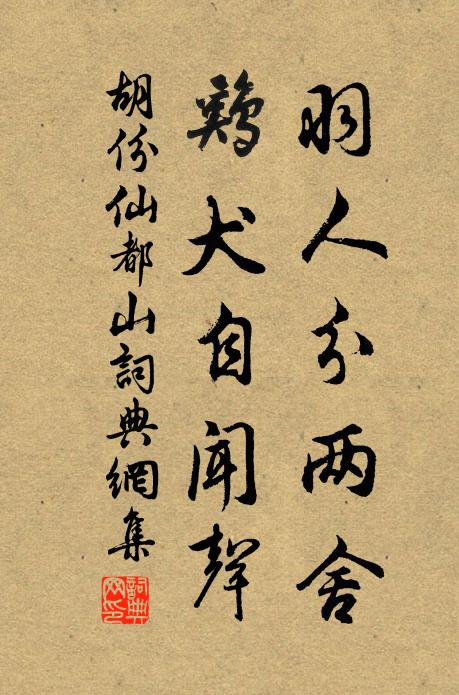 羽人分两舍
鷄犬自闻聲
胡份仙都山詞典網集
詞典网印